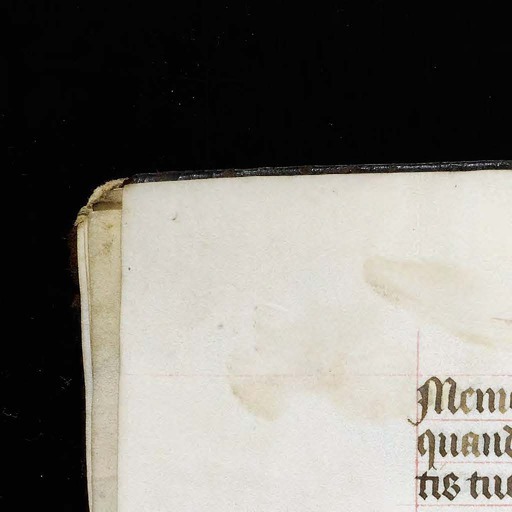 Meme
quand
tis tue